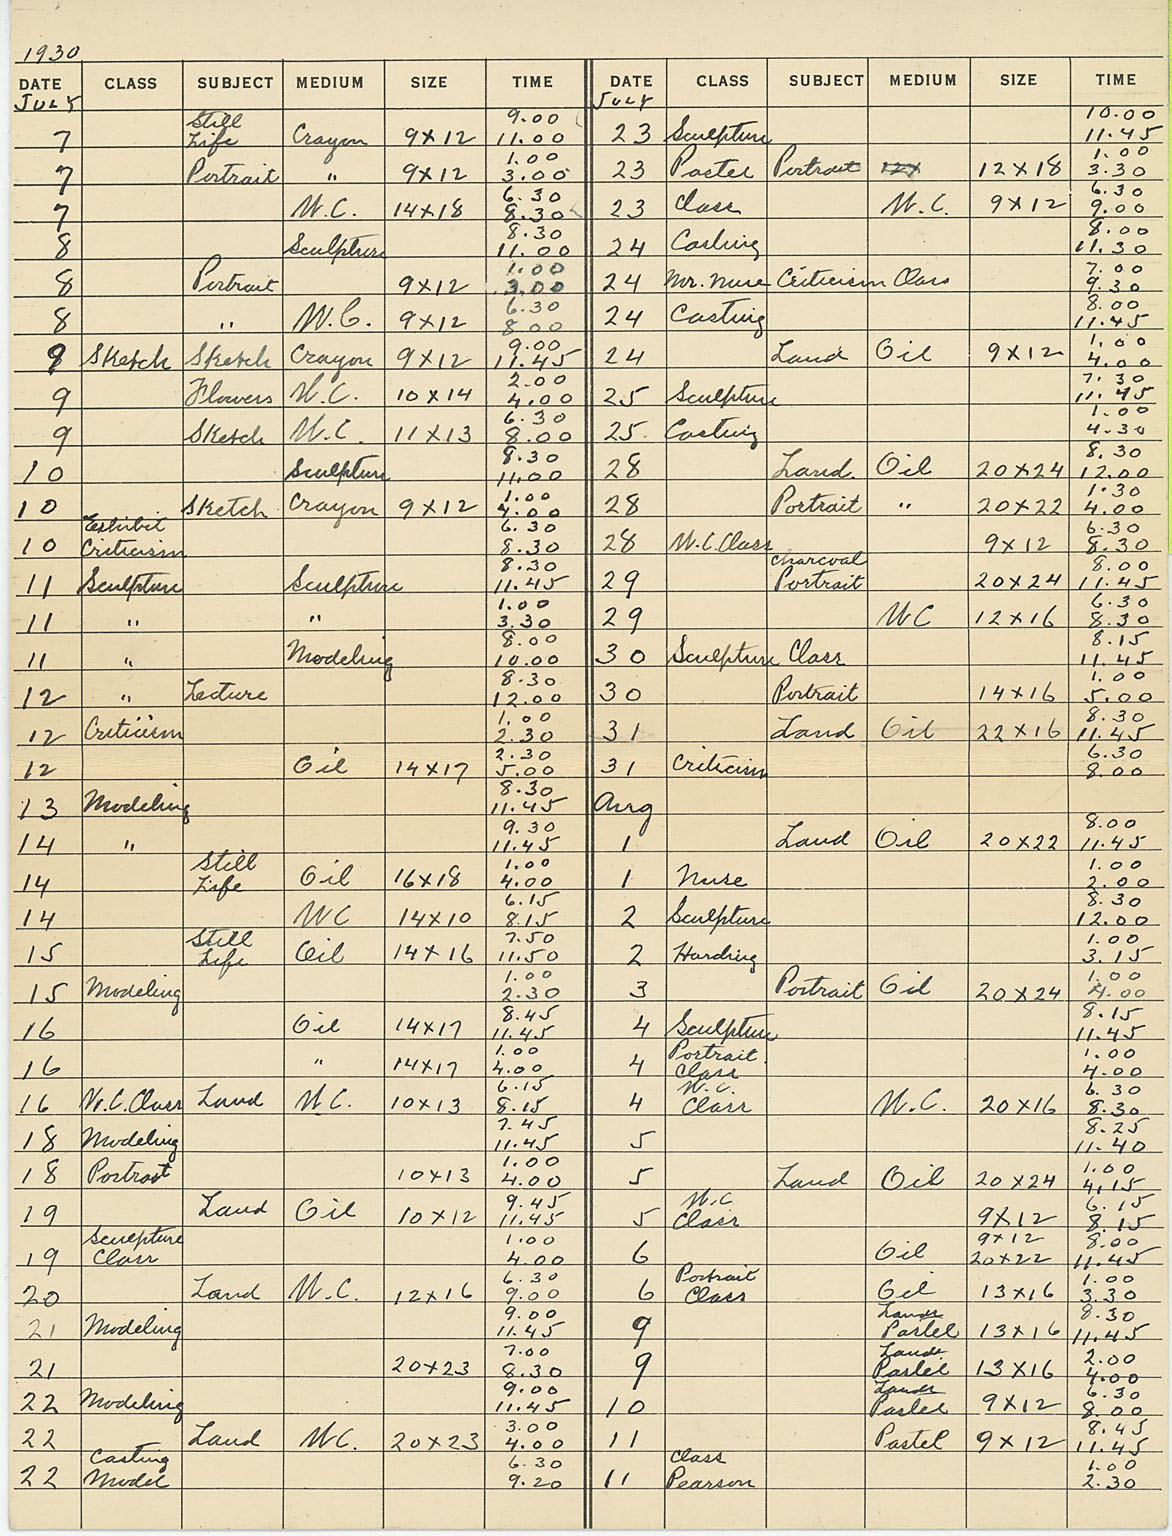 1930
DATE CLASS SUBJECT MEDIUM SIZE TIME
JULY
7 Still Life Crayon 9X12 9.00 11.00
7 Portrait " 9X12 1.00 3.00
7 W.C. 14X18 6.30 8.30
8 Sculpture 8.30 11.00
8 Portrait 9X12 1.00 3.00
8 " W.C. 9X12 6.30 8.00
9 Sketch Sketch Crayon 9X12 9.00 11.45
9 Flowers W.C. 10X14 2.00 4.00
9 Sketch W.C. 11X13 6.30 8.00
10 Sculpture 8.30 11.00
10 Sketch Crayon 9X12 1.00 4.00
10 Exhibit Criticism 6.30 8.30
11 Sculpture Sculpture 8.30 11.45
11 " " 1.00 3.30
11 " Modeling 8.00 10.00
12 " Lecture 8.30 12.00
12 Criticism 1.00 2.30
12 Oil 14X17 2.30 5.00
13 Modeling 8.30 11.45
14 " 9.30 11.45
14 Still Life Oil 16X18 1.00 4.00
14 WC 14X10 6.15 8.15
15 Still Life Oil 14X16 7.50 11.50
15 Modeling 1.00 2.30
16 Oil 14X17 8.45 11.45
16 " 14X17 1.00 4.00
16 W.C. Class Land W.C. 10X13 6.15 8.15
18 Modeling 7.45 11.45
18 Portrait 10X13 1.00 4.00
19 Land Oil 10X12 9.45 11.45
19 Sculpture Class 1.00 4.00
20 Land W.C. 12X16 6.30 9.00
21 Modeling 9.00 11.45
21 20X23 7.00 8.30
22 Modeling 9.00 11.45
22 Land W.C. 20X23 3.00 4.00
22 Casting Model 6.30 9.20
DATE CLASS SUBJECT MEDIUM SIZE TIME
JULY
23 Sculpture 10.00 11.45
23 Pastel Portrait 12X 12X18 1.00 3.30
23 Class W.C. 9X12 6.30 9.00
24 Casting 8.00 11.30
24 Mr. Nuse Criticism Class 7.00 9.30
24 Casting 8.00 11.45
24 Land Oil 9X12 1.00 4.00
25 Sculpture 7.30 11.45
25 Casting 1.00 4.30
28 Land. Oil 20X24 8.30 12.00
28 Portrait " 20X22 1.30 4.00
28 W.C. Class 9X12 6.30 8.30
29 Charcoal Portrait 20X24 8.00 11.45
29 WC 12X16 6.30 8.30
30 Sculpture Class 8.15 11.45
30 Portrait 14X16 1.00 5.00
31 Land Oil 22X16 8.30 11.45
31 Criticism 6.30 8.00
Aug
1 Land Oil 20X22 8.00 11.45
1 Nuse 1.00 2.00
2 Sculpture 8.30 12.00
2 Harding 1.00 3.15
3 Portrait Oil 20X24 1.00 4.00
4 Sculpture 8.15 11.45
4 Portrait Class 1.00 4.00
4 W.C. Class W.C. 20X16 6.30 8.30
5 8.25 11.40
5 Land Oil 20X24 1.00 4.15
5 W.C Class 9X12 6.15 8.15
6 Oil 9X12 20X22 8.00 11.45
6 Portrait Class Oil 13X16 1.00 3.30
9 Pastel 13X16 8.30 11.45
9 Pastel 13X16 2.00 4.00
10 Pastel 9X12 6.30 8.00
11 Pastel 9X12 8.45 11.45
11 Class Pearson 1.00 2.30